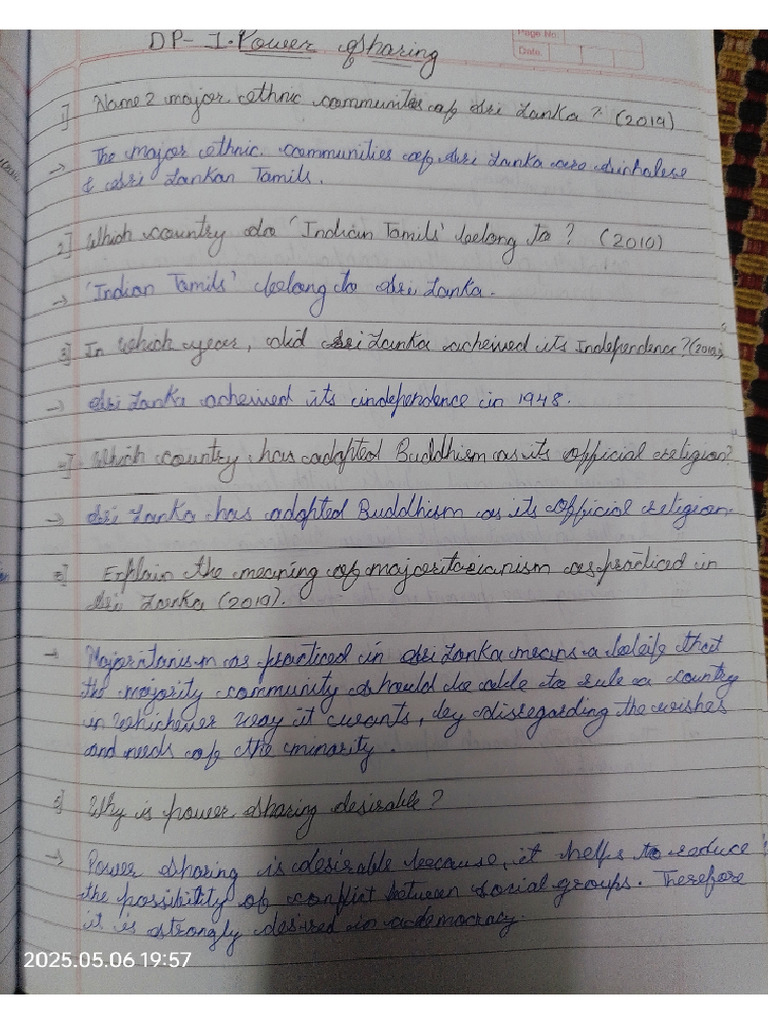 Page No.
Date.
DP- 1. Power Sharing
1] Name 2 major ethnic communites of Sri Lanka ? (2019)
→ The major ethnic communities of Sri Lanka are Sinhalese
& Sri Lankan Tamils.
2] Which country do 'Indian Tamils' belong to ? (2010)
→ 'Indian Tamils' belong to Sri Lanka.
3] In which year, did Sri Lanka acheived its Independence?
→ Sri Lanka acheived its independence in 1948.
Which country has adopted Buddhism as its official religion?
→ Sri Lanka has adopted Buddhism as its official religion.
Explain the meaning of majoritarianism as practiced in
Sri Lanka (2010).
→ Majoratanism as practiced in Sri Lanka means a beleif that
the majority community should be able to rule a country
in whichever way it wants, by disregarding the wishes
and needs of the minority.
Why is power sharing desirable?
→ Power sharing is desirable because, it helps to reduce
the possibility of conflict between social groups. Therefore
it is strongly desired in a democracy.
2025.05.06 19:57